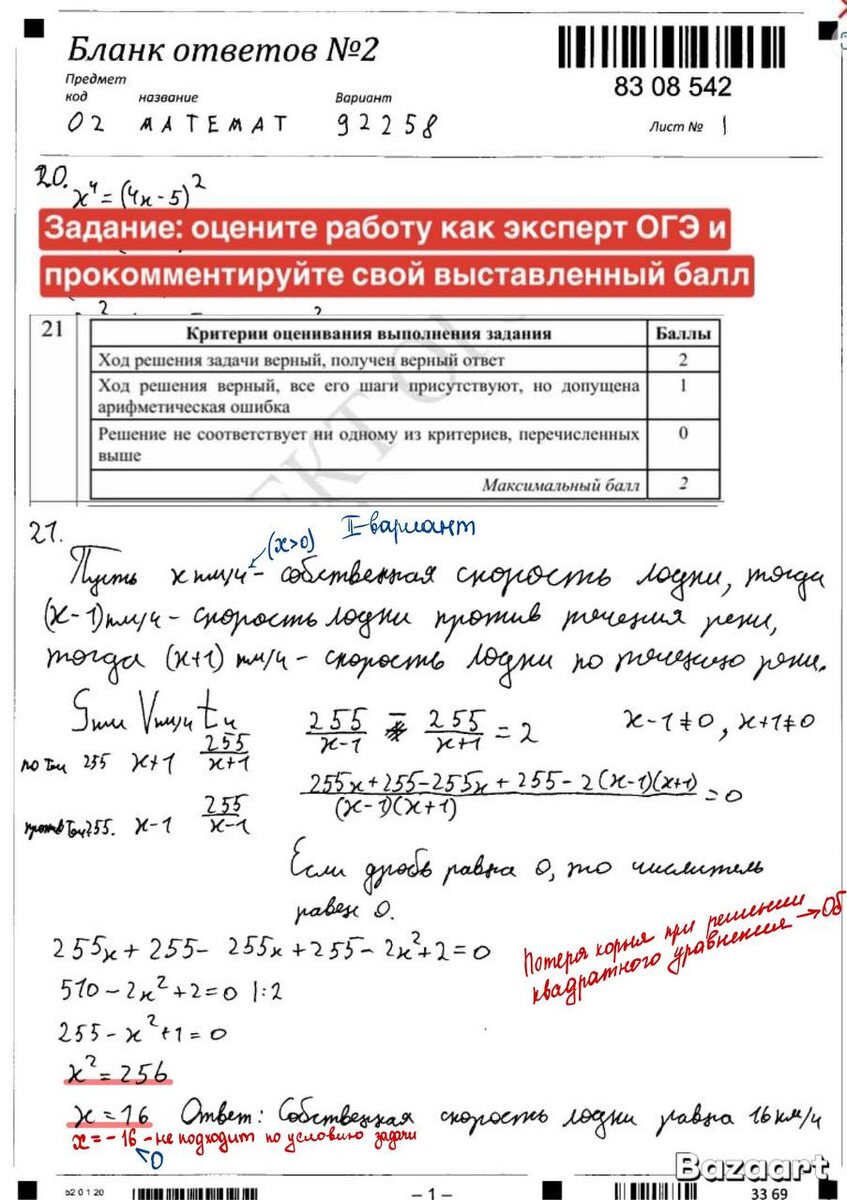 Бланк ответов №2
83 08 542
Предмет
код название Вариант
02 МАТЕМАТ 92258 Лист № 1
20. x⁴=(4x-5)²
Задание: оцените работу как эксперт ОГЭ и
прокомментируйте свой выставленный балл
21 Критерии оценивания выполнения задания Баллы
Ход решения задачи верный, получен верный ответ 2
Ход решения верный, все его шаги присутствуют, но допущена
арифметическая ошибка 1
Решение не соответствует ни одному из критериев, перечисленных
выше 0
Максимальный балл 2
21. (x>0) II-вариант
Пусть x км/ч - собственная скорость лодки, тогда
(x-1)км/ч - скорость лодки против течения реки,
тогда (x+1) км/ч - скорость лодки по течению реки.
Sкм Vкм/ч tч
по теч 255 x+1 255/(x+1)
против теч 255. x-1 255/(x-1)
255/(x-1) - 255/(x+1) = 2 x-1≠0, x+1≠0
(255x+255-255x+255-2(x-1)(x+1))/((x-1)(x+1)) = 0
Если дробь равна 0, то числитель
равен 0.
255x+255-255x+255-2x²+2=0
Потеря корня при решении
квадратного уравнения → 0б
510-2x²+2=0 |:2
255-x²+1=0
x²=256
x=16 Ответ: Собственная скорость лодки равна 16км/ч
x=-16 - не подходит по условию задачи
<0
Bazaart
b2 0 1 20 – 1 – 33 69